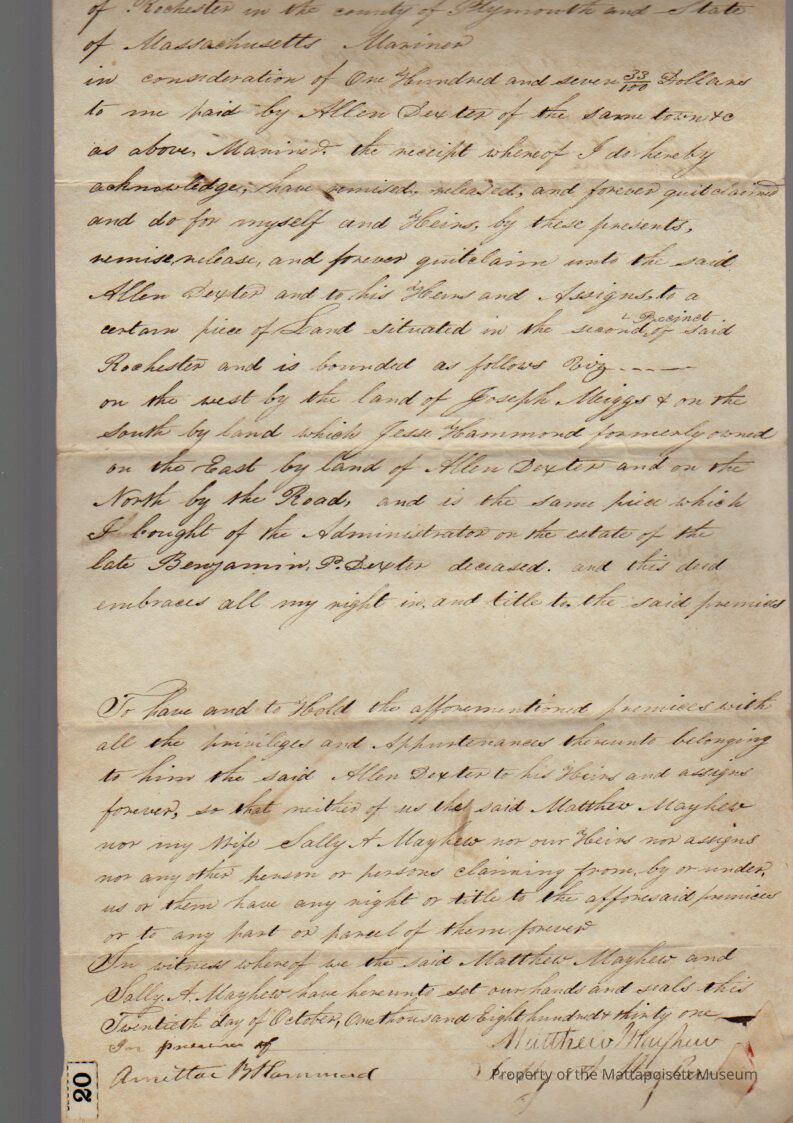 of Rochester in the county of Plymouth and State
of Massachusetts Mariner
in consideration of One Hundred and seven 33/100 Dollars
to me paid by Allen Dexter of the same town &c
as above, Mariner. the receipt whereof I do hereby
acknowledge, have remised, released, and forever quitclaimed
and do for myself and Heirs, by these presents,
remise, release, and forever quitclaim unto the said
Allen Dexter and to his Heirs and Assigns, to a
certain piece of Land situated in the second Precinct of said
Rochester and is bounded as follows Viz
on the west by the land of Joseph Meiggs & on the
South by land which Jesse Hammond formerly owned
on the East by land of Allen Dexter and on the
North by the Road, and is the same piece which
I bought of the Administrator on the estate of the
late Benjamin. P. Dexter deceased. and this deed
embraces all my right in, and title to the said premices
To have and to Hold the afforementioned premices with
all the privileges and Appurtenances thereunto belonging
to him the said Allen Dexter to his Heirs and assigns
forever, so that neither of us the said Matthew Mayhew
nor my Wife Sally A Mayhew nor our Heirs nor assigns
nor any other person or persons claiming from, by or under,
us or them have any right or title to the afforesaid premices
or to any part or parcel of them forever
In witness whereof we the said Matthew Mayhew and
Sally. A. Mayhew have hereunto set our hands and seals this
Twentieth day of October, One thousand Eight hundred & thirty one
In presence of Matthew Mayhew
B Hammond Sally A
Property of the Mattapoisett Museum
20